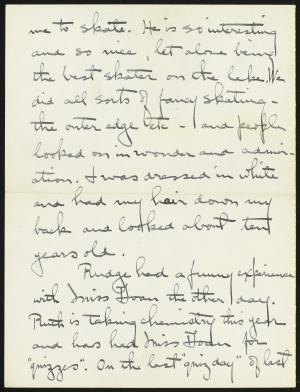 me to skate. He is so interesting
and so nice, let alone being
the best skater on the lake. We
did all sorts of fancy skating -
the outer edge etc - and people
looked on in wonder and admir-
ation. I was dressed in white
and had my hair down my
back and looked about ten
years old.
Rudge had a funny experience
with Miss Doan the other day.
Ruth is taking chemistry this year
and has had Miss Doan for
"quizzes". On the last "quiz day" of last